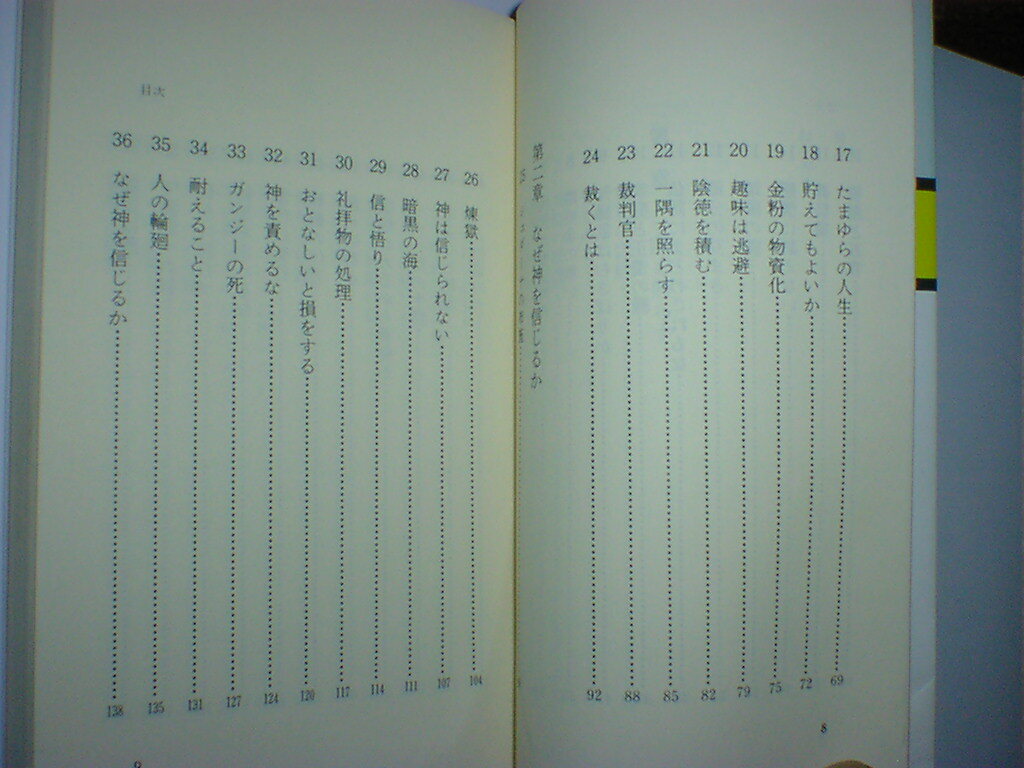 17 たまゆらの人生 69
18 貯えてもよいか 72
19 金粉の物資化 75
20 趣味は逃避 79
21 陰徳を積む 82
22 一隅を照らす 85
23 裁判官 88
24 裁くとは 92
8
第二章 なぜ神を信じるか
26 煉獄 104
27 神は信じられない 107
28 暗黒の海 111
29 信と悟り 114
30 礼拝物の処理 117
31 おとなしいと損をする 120
32 神を責めるな 124
33 ガンジーの死 127
34 耐えること 131
35 人の輪廻 135
36 なぜ神を信じるか 138
目次